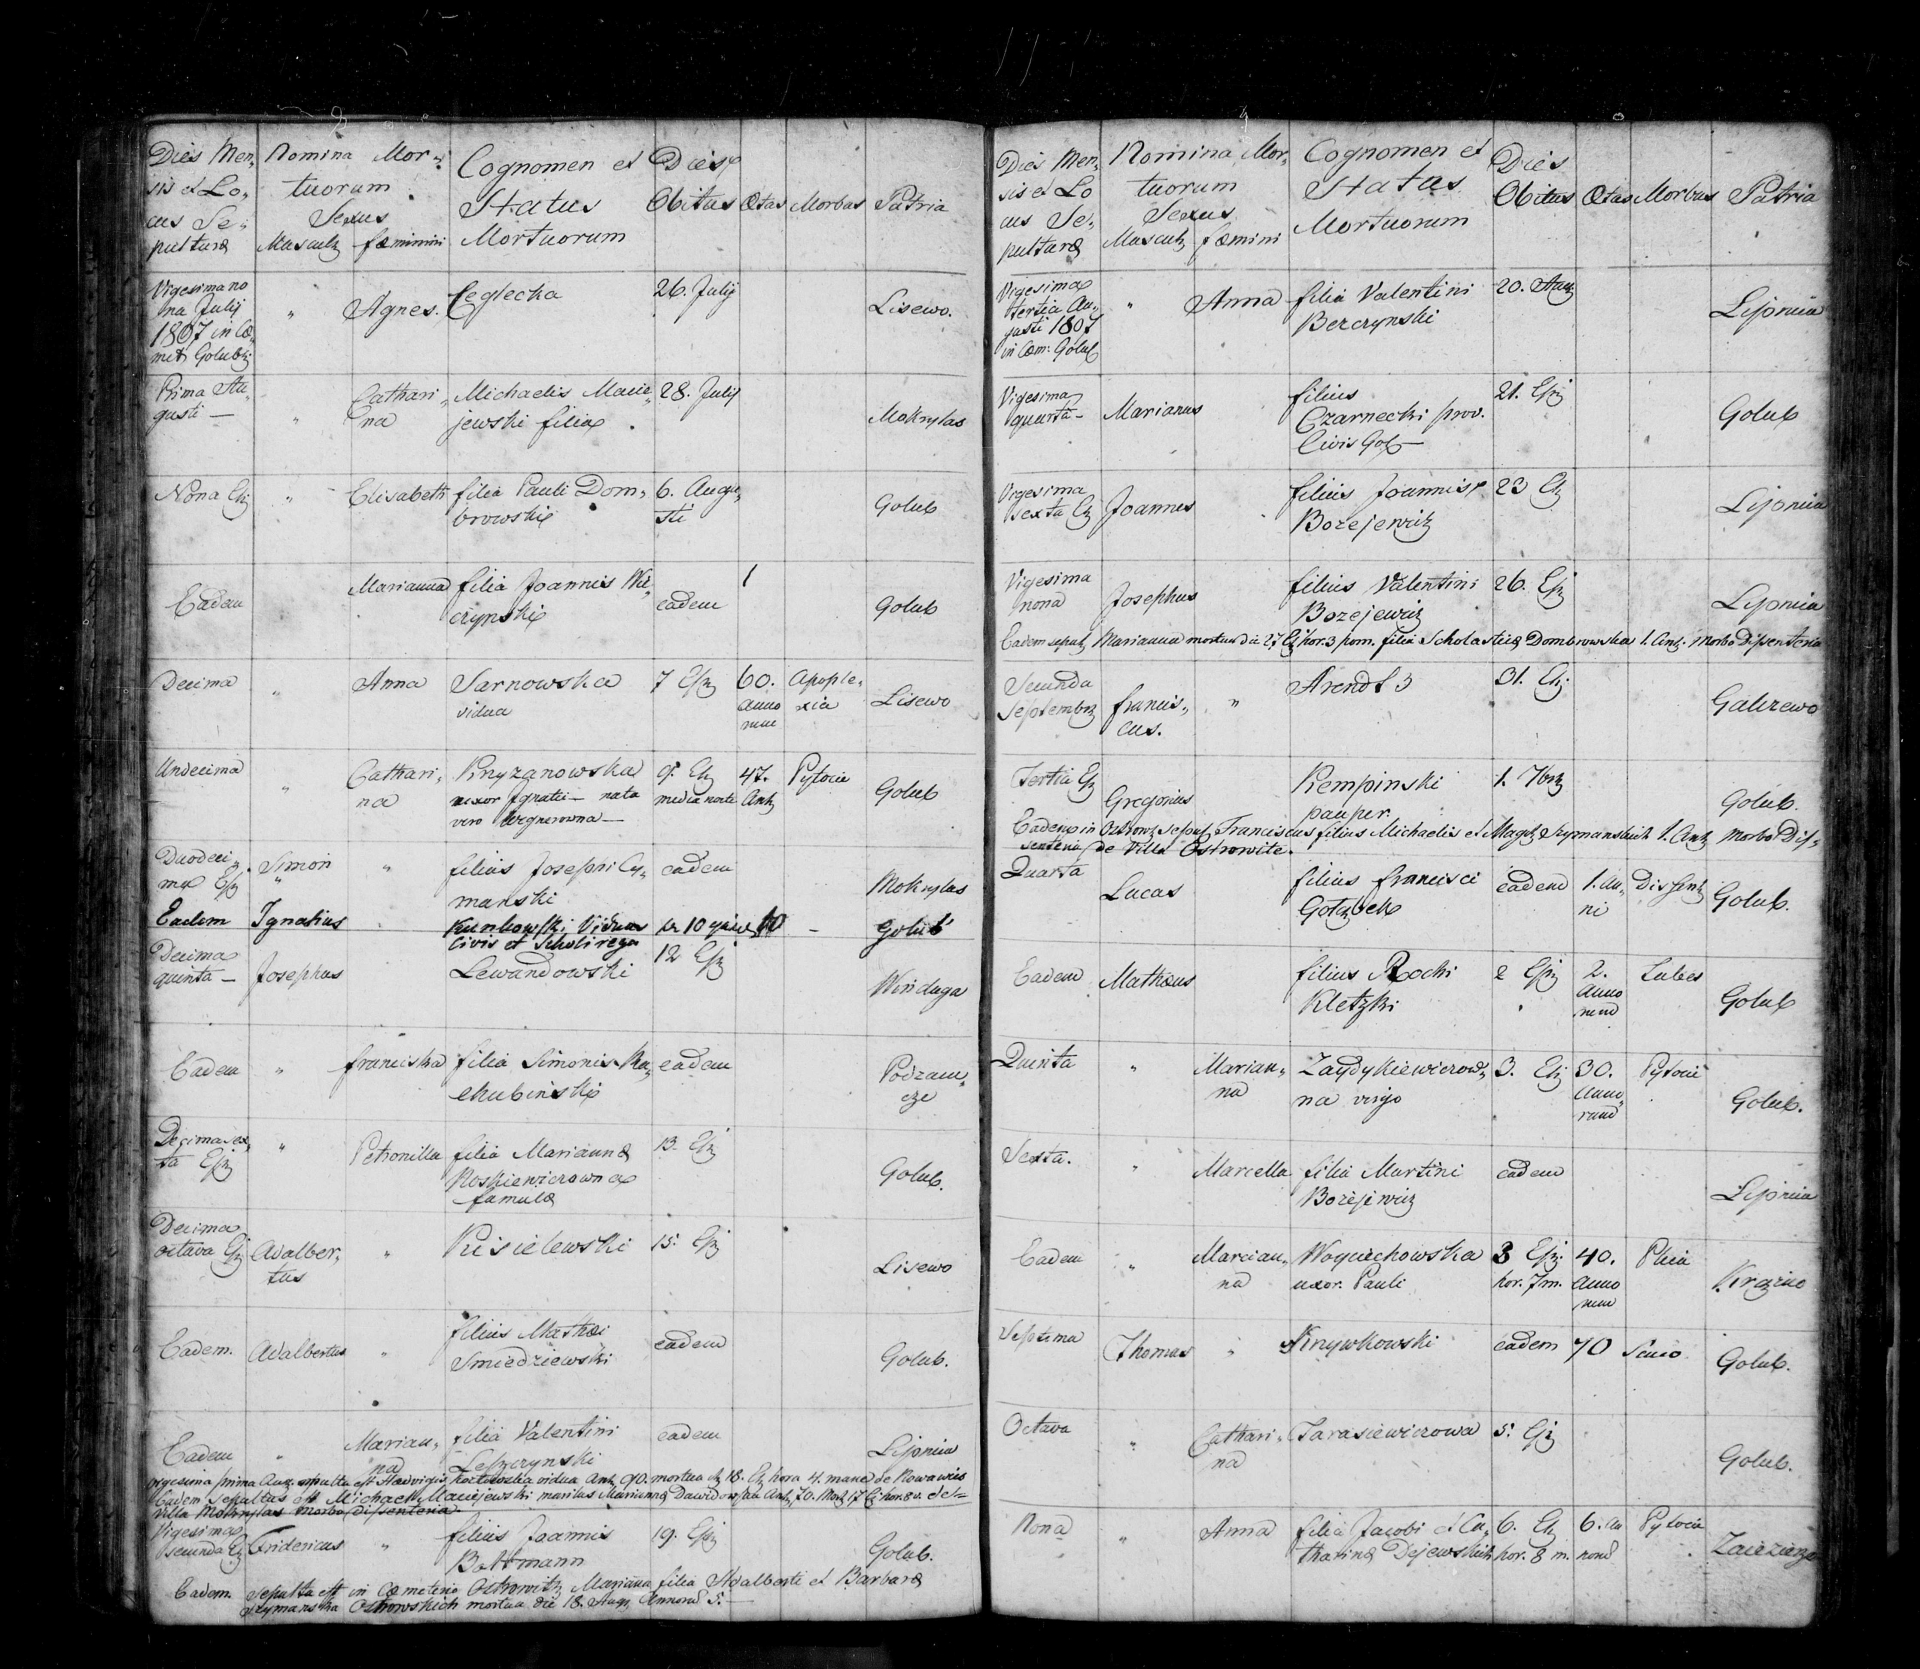 Dies Men,
sis et Lo,
cus Se,
pulturæ
Nomina Mor,
tuorum
Sexus
Masculi fœminini
Cognomen et
Status
Mortuorum
Dies
Obitus
Ætas
Morbus
Patria
Vigesima no
na Julij
1807 in Cœ,
met Golub:
Agnes.
Ceglecka
26. Julij
Lisewo.
Prima Au,
gusti —
Cathari,
na
Michaelis Macie,
jewski filia
28. Julij
Mokrylas
Nona Ej
Elisabeth
filia Pauli Dom,
browski
6. Augu,
sti
Golub
Eadem
Marianna
filia Joannis Wi
czynski
eadem
1
Golub
Decima
Anna
Sarnowska
vidua
7 Ej
60.
Anno
rum
Apople,
xia
Lisewo
Undecima
Cathari,
na
Kryzanowska
uxor Ignatii — nata
vero Wegnerowna —
9. Ej
media nocte
47.
An
Golub
Duodeci,
ma Ej
Simon
filius Josephi Cy,
manski
eadem
Mokrylas
Eadem
Ignatius
Viduus
Civis et
Golub
Decima
quinta —
Josephus
Lewandowski
12 Ej
Winduga
Eadem
Franciska
filia Simonis Ka,
chubinski
eadem
Podzam,
cze
Decima sex,
ta Ej
Petronilla
filia Mariannæ
Roskiewiczowna
famulæ
13. Ej
Golub.
Decima
octava Ej
Adalber,
tus
Kisielewski
15. Ej
Lisewo
Eadem.
Adalbertus
filius Mathæi
Smiedziewski
eadem
Golub.
Eadem
Marian,
na
filia Valentini
Leszczynski
eadem
Lipnica
Vigesima prima Aug. sepulta est Hedvigis vidua An 90. mortua 18. Ej hora 4. mane de Nowawies
Eadem sepultus est Michael Maciejewski maritus Mariannæ An 70. 17 Ej hor. 8 v. de
Villa Mokrylas morbo Dissenteria.
Vigesima
secunda Ej
Fridericus
filius Joannis
19. Ej
Golub.
Eadem. sepulta est in Cœmeterio Ostrowitz Marianna filia Adalberti et Barbaræ
mortua die 18. Aug. Annorum 5. —
Dies Men,
sis et Lo
cus Se,
pulturæ
Nomina Mor,
tuorum
Sexus
Masculi fœmini
Cognomen et
Status
Mortuorum
Dies
Obitus
Ætas
Morbus
Patria
Vigesima
tertia Au,
gusti 1807
in Cœm: Golub
Anna
filia Valentini
Berczynski
20. Aug
Lipnica
Vigesima
quarta —
Marianus
filius
Czarnecki prov.
Civis Gol —
21. Ej
Golub
Vigesima
sexta Ej
Joannes
filius Joannis
Bozejewicz
23 Ej
Lipnica
Vigesima
nona
Josephus
filius Valentini
Bozejewicz
26. Ej
Lipnica
Eadem sepul Marianna mortua die 27 Ej hor. 3 pom. filia Scholasticæ Dombrowska 1. An. Morbo Dissenteria
Secunda
Septembr
Francis,
cus.
31. Ej
Galczewo
Tertia Ej
Gregorius
Kempinski
pauper
1. 7br
Golub.
Eadem in Ostrow sepul Franciscus filius Michaelis et Mag Szymanskich 1. An Morbo Dis,
senteria de Villa Ostrowite.
Quarta
Lucas
filius Francisci
Golzbek
eadem
1. an,
ni
Dissent
Golub.
Eadem
Mathæus
filius Rochi
Kletzki
2 Ej
2.
Anno
rum
Golub
Quinta
Marian,
na
Zaydykiewiczow,
na virgo
3. Ej
30.
Anno,
rum
Golub.
Sexta.
Marcella
filia Martini
Bozejewicz
eadem
Lipnica
Eadem
Marian,
na
Woyciechowska
uxor. Pauli
3 Ej.
hor. 7 m.
40.
Anno
rum
Septima
Thomas
Krzywkowski
eadem
70
Golub.
Octava
Cathari,
na
Tarasiewiczowa
5. Ej
Golub.
Nona
Anna
filia Jacobi et Ca,
tharinæ Dejewskich
6. Ej
hor. 8 m.
6. An
norum